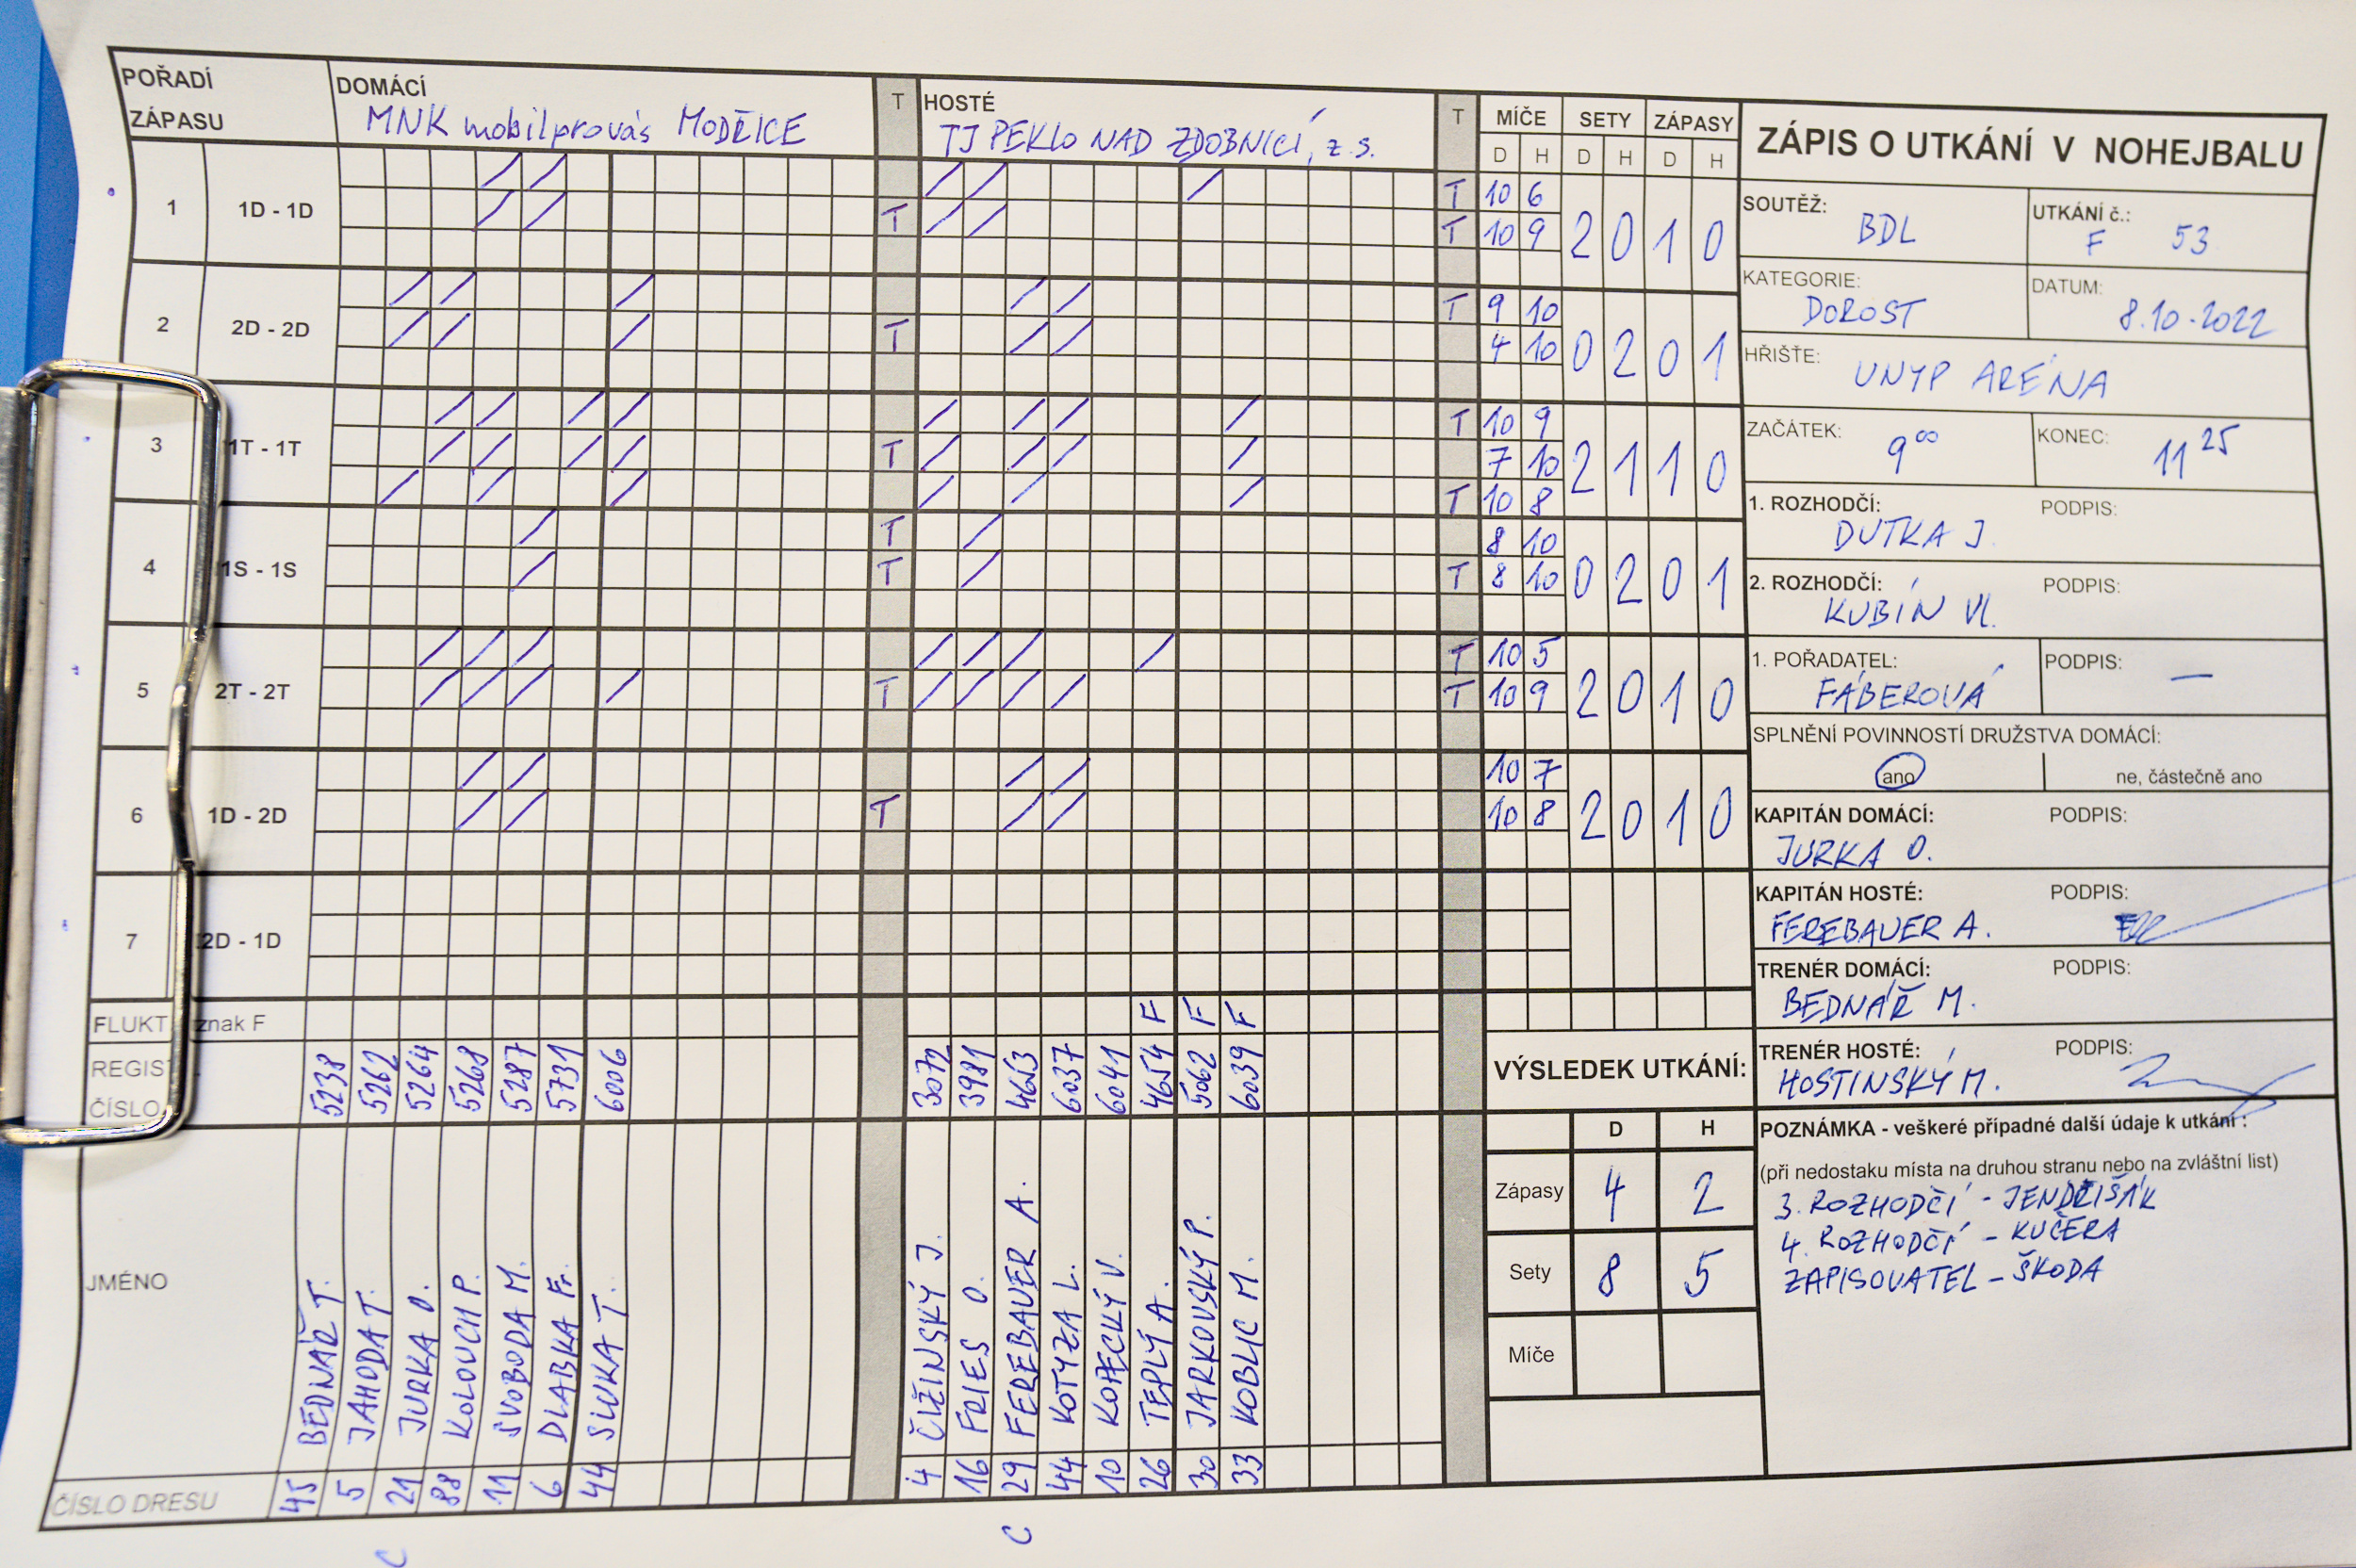 POŘADÍ ZÁPASU
DOMÁCÍ
MNK mobilprovás MODŘICE
T
HOSTÉ
TJ PEKLO NAD ZDOBNICÍ, z.s.
T
MÍČE SETY ZÁPASY
D H D H D H
1 1D - 1D T T 10 6
T 10 9
2 0 1 0
2 2D - 2D T T 9 10
4 10
0 2 0 1
3 1T - 1T T T 10 9
7 10
T 10 8
2 1 1 0
4 1S - 1S T 8 10
T T 8 10
0 2 0 1
5 2T - 2T T 10 5
T T 10 9
2 0 1 0
6 1D - 2D 10 7
T 10 8
2 0 1 0
7 2D - 1D
FLUKT znak F F F F
REGIS ČÍSLO
5238 5262 5264 5268 5287 5731 6006
3072 3981 4653 6037 6041 4654 5062 6039
JMÉNO
BEDNAŘ T.
JAHODA T.
JURKA O.
KOLOUCH P.
SVOBODA M.
DLABKA Fr.
SLUKA T.
ČIŽINSKÝ J.
FRIES O.
FEREBAUER A.
KOTYZA L.
KOPECKÝ V.
TEPLÝ A.
JARKOVSKÝ P.
KOBLIC M.
ČÍSLO DRESU
45 5 21 88 11 6 44
4 16 29 44 10 26 30 33
C C
ZÁPIS O UTKÁNÍ V NOHEJBALU
SOUTĚŽ: BDL
UTKÁNÍ č.: F 53
KATEGORIE: DOROST
DATUM: 8.10.2022
HŘIŠTĚ: UNYP ARÉNA
ZAČÁTEK: 9 00
KONEC: 11 25
1. ROZHODČÍ: PODPIS:
DUTKA J.
2. ROZHODČÍ: PODPIS:
KUBÍN Vl.
1. POŘADATEL: PODPIS:
FABEROVÁ —
SPLNĚNÍ POVINNOSTÍ DRUŽSTVA DOMÁCÍ:
ano ne, částečně ano
KAPITÁN DOMÁCÍ: PODPIS:
JURKA O.
KAPITÁN HOSTÉ: PODPIS:
FEREBAUER A.
TRENÉR DOMÁCÍ: PODPIS:
BEDNAŘ M.
TRENÉR HOSTÉ: PODPIS:
HOSTINSKÝ M.
VÝSLEDEK UTKÁNÍ:
D H
Zápasy 4 2
Sety 8 5
Míče
POZNÁMKA - veškeré případné další údaje k utkání :
(při nedostaku místa na druhou stranu nebo na zvláštní list)
3. ROZHODČÍ - JENDŘIŠÁK
4. ROZHODČÍ - KUČERA
ZAPISOVATEL - ŠKODA